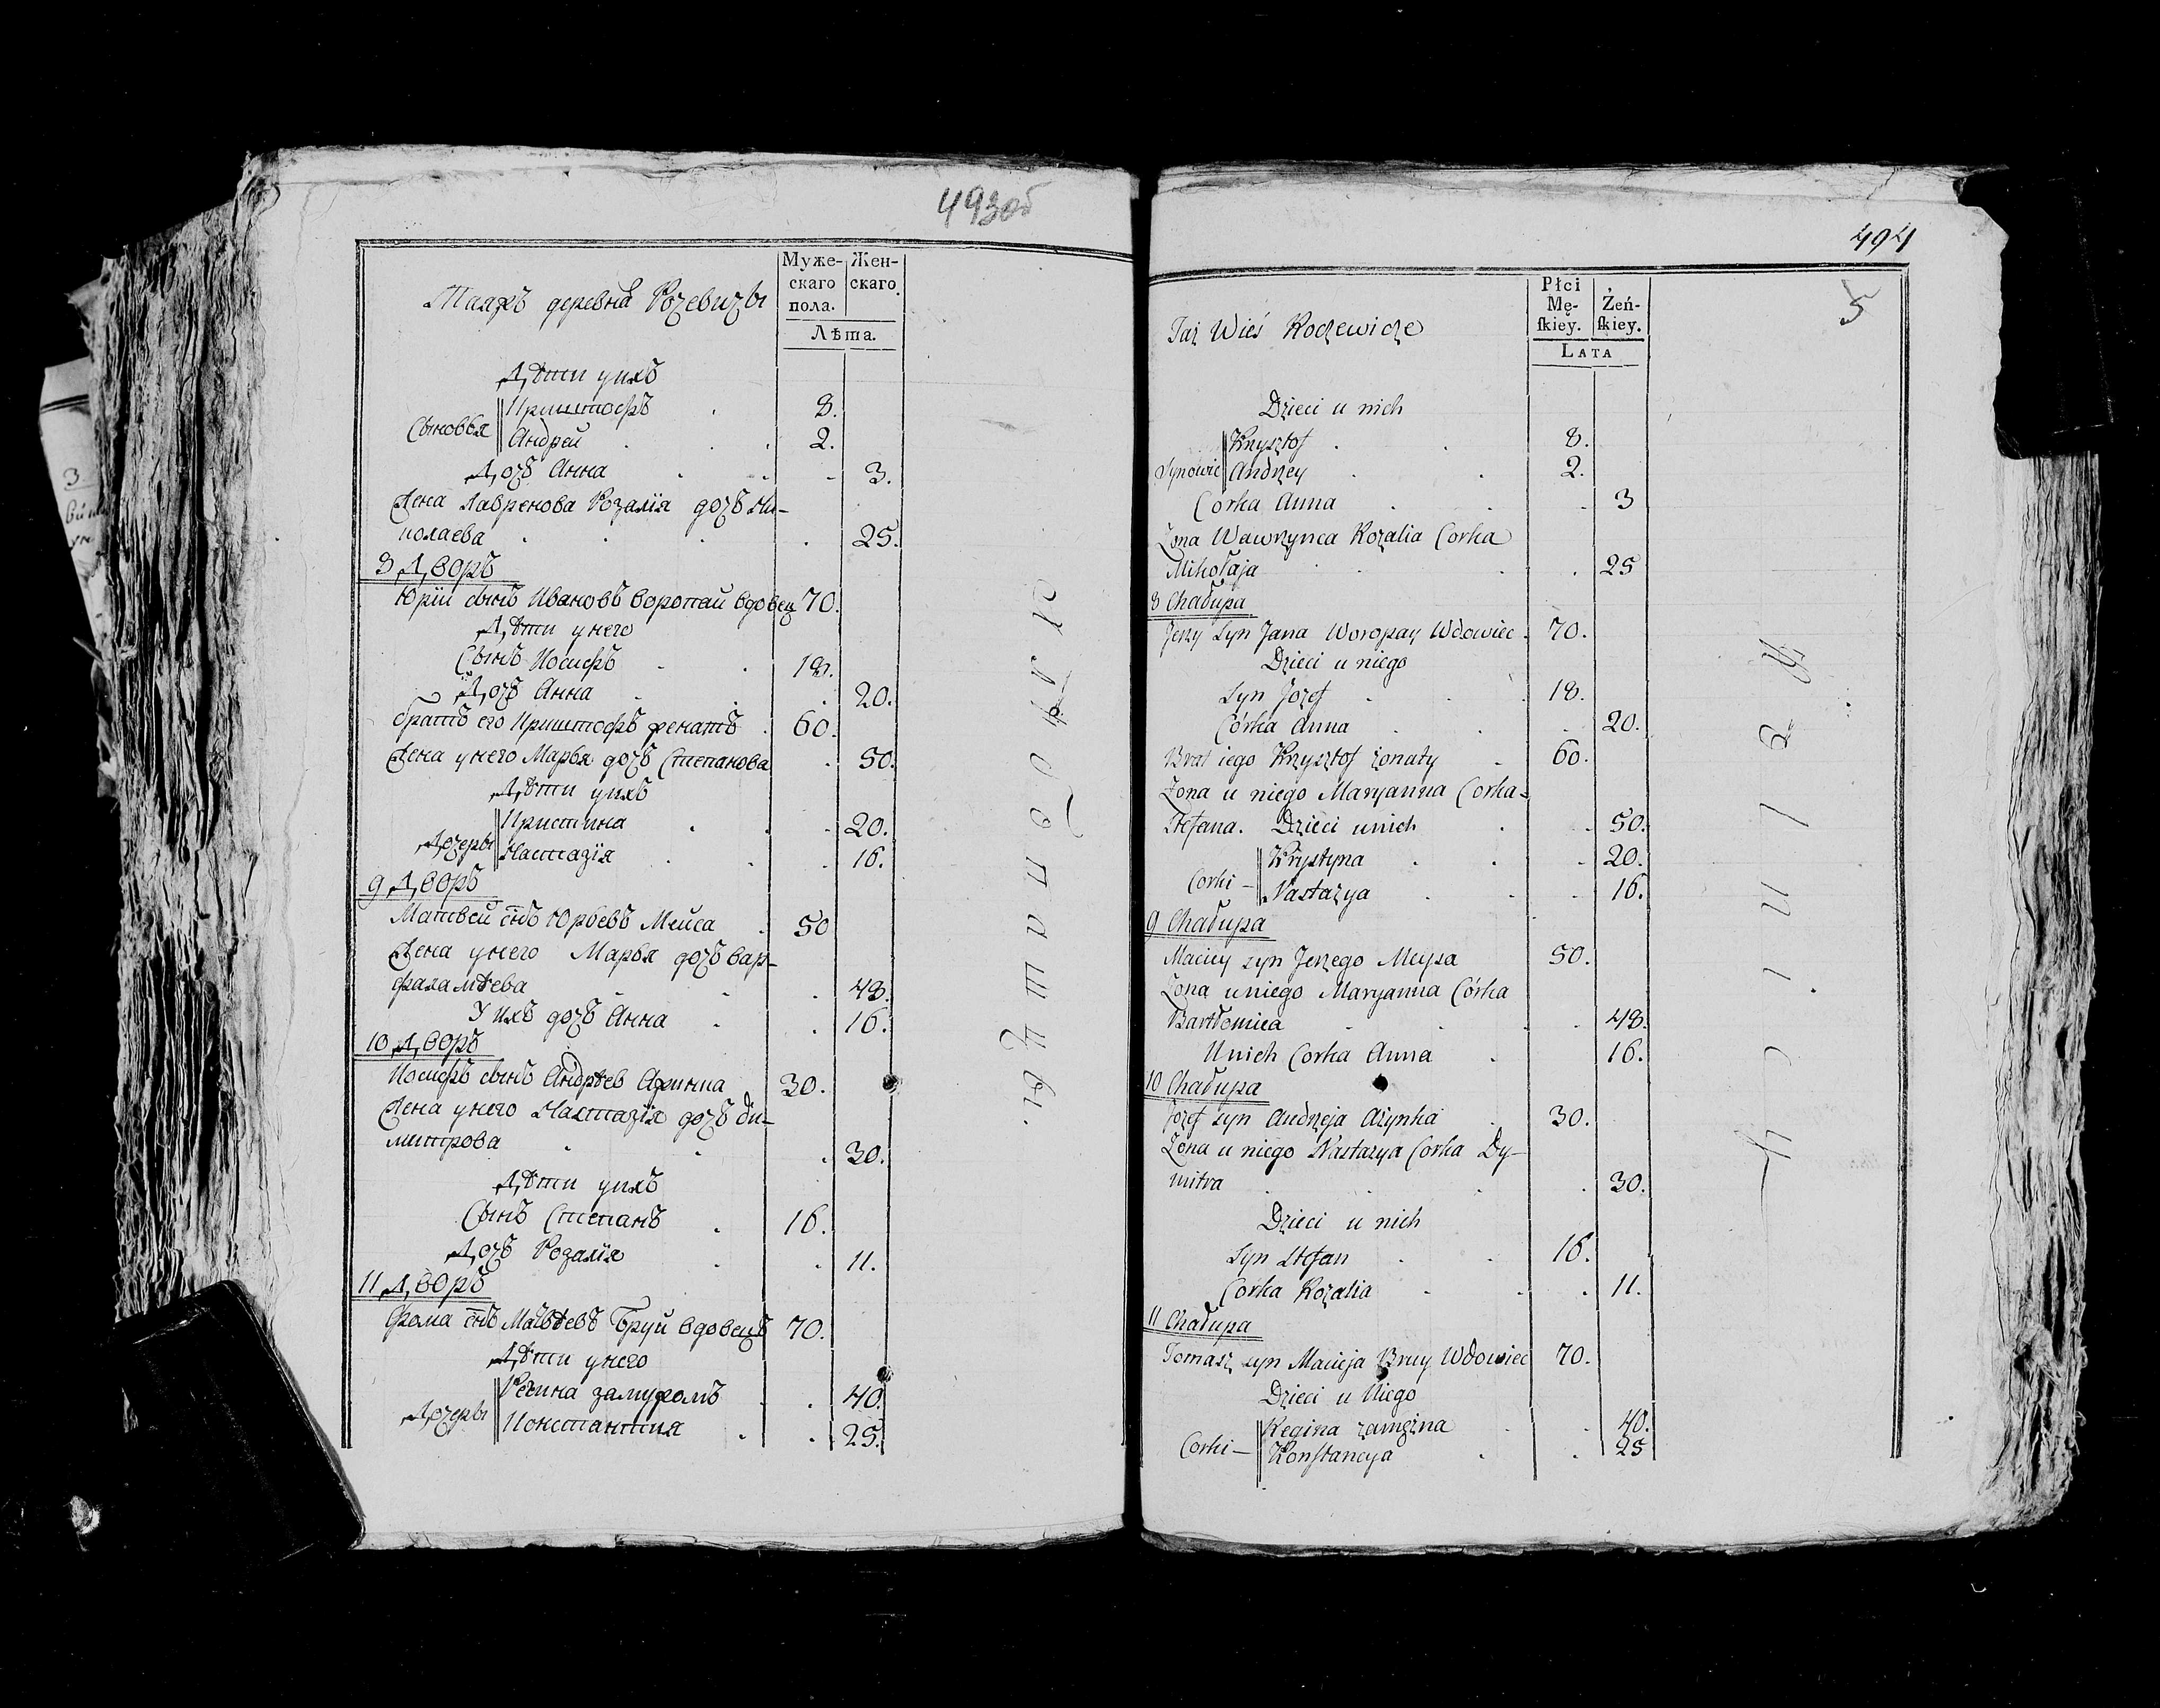 493об
Таяжъ деревня Рочевичы
Муже-
скаго
пола.
Жен-
скаго.
Лѣта.
Дѣти у ихъ
Сыновья
Криштофъ . 8.
Андрей . . . 2.
Дочь Анна . . . 3.
Жена Лавренова Розалія дочь Ни-
колаева . . . . 25.
8 Дворъ
Юрій сынъ Ивановъ Воропай вдовец 70.
Дѣти у него
Сынъ Иосифъ . . 18.
Дочь Анна . . . 20.
братъ его Криштофъ женатъ . 60.
Жена у него Марья дочь Степанова . 50.
Дѣти у ихъ
Дочеры
Кристина . . . 20.
Настазія . . . 16.
9 Дворъ
Матвей снъ Юрьевъ Мейса . 50
Жена у него Марья дочь Вар-
фаламѣева . . . 48.
У ихъ дочь Анна . . 16.
10 Дворъ
Иосифъ сынъ Андрѣев Ажинка 30.
Жена у него Настазія дочь Ди-
митрова . . . 30.
Дѣти у ихъ
Сынъ Степанъ . 16.
Дочь Розалія . . 11.
11 Дворъ
Фома снъ Матвѣевъ Бруй вдовецъ 70.
Дѣти у него
Дочеры
Регина замужомъ . . 40.
Констанция . . 25.
494
5
Taż Wieś Roczewicze
Płci
Mę-
skiey.
Żeń-
skiey.
LATA
Dzieci u nich
Synowie
Krysztof . . 8.
Andrzey . . 2.
Córka Anna . . . 3
Żona Wawrzynca Rozalia Corka
Mikołaja . . . . 25
8 Chałupa
Jerzy Syn Jana Woropay Wdowiec . 70.
Dzieci u niego
Syn Jozef . . . 18.
Córka Anna . . . 20.
Brat iego Krzysztof żonaty . 60.
Żona u niego Maryanna Corka
Stefana. Dzieci u nich . . 50.
Corki —
Krystyna . . . 20.
Nastazya . . . 16.
9 Chałupa
Maciey syn Jerzego Meysa 50.
Żona u niego Maryanna Córka
Bartłomiea . . . . 48.
U nich Corka Anna . 16.
10 Chałupa
Jozef syn Andrzeja Ażynka . 30.
Żona u niego Nastazya Corka Dy-
mitra . . . . 30.
Dzieci u nich
Syn Stefan . . 16.
Corka Rozalia . . . 11.
11 Chałupa
Tomasz syn Macieja Bruy Wdowiec 70.
Dzieci u Niego
Corki —
Regina zamężna . . 40.
Konstancya . . 25